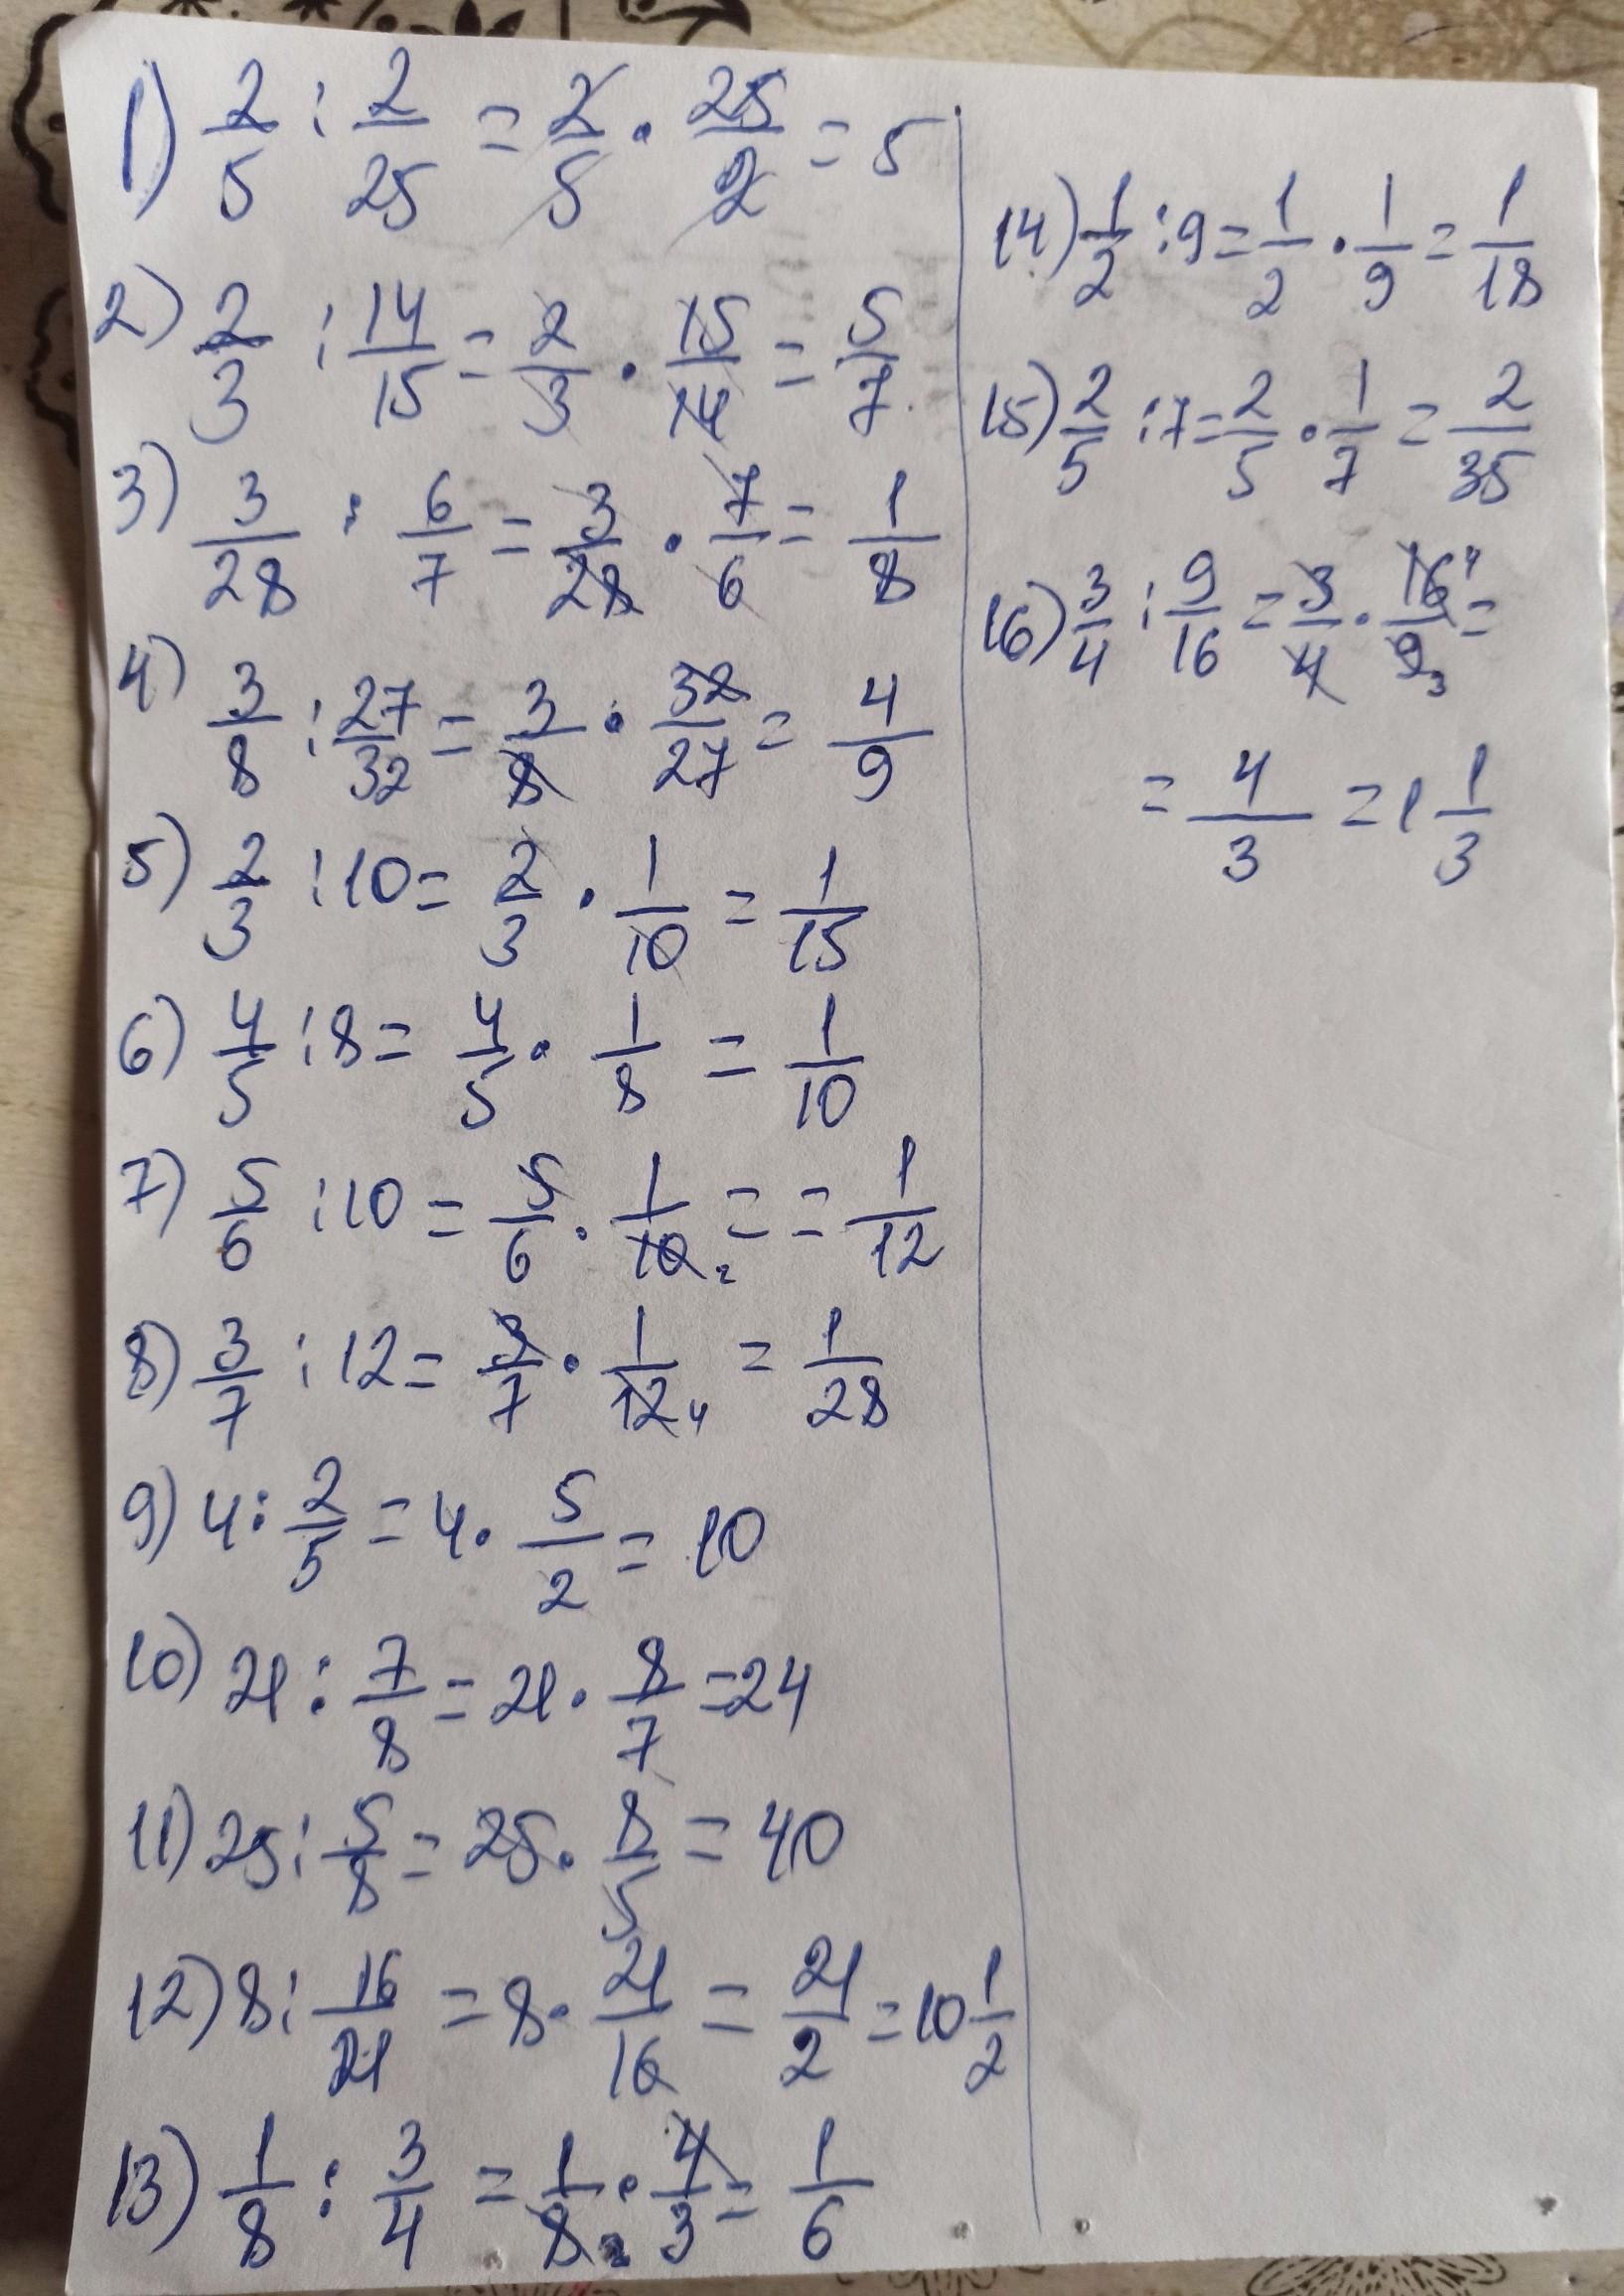 1) 2/5 : 2/25 = 2/5 · 25/2 = 5
2) 2/3 : 14/15 = 2/3 · 15/14 = 5/7
3) 3/28 : 6/7 = 3/28 · 7/6 = 1/8
4) 3/8 : 27/32 = 3/8 · 32/27 = 4/9
5) 2/3 : 10 = 2/3 · 1/10 = 1/15
6) 4/5 : 8 = 4/5 · 1/8 = 1/10
7) 5/6 : 10 = 5/6 · 1/10 2 = = 1/12
8) 3/7 : 12 = 3/7 · 1/12 4 = 1/28
9) 4 : 2/5 = 4 · 5/2 = 10
10) 21 : 7/8 = 21 · 8/7 = 24
11) 25 : 5/8 = 25 · 8/5 = 40
12) 8 : 16/21 = 8 · 21/16 = 21/2 = 10 1/2
13) 1/8 : 3/4 = 1/8 2 · 4/3 = 1/6
14) 1/2 : 9 = 1/2 · 1/9 = 1/18
15) 2/5 : 7 = 2/5 · 1/7 = 2/35
16) 3/4 : 9/16 = 3/4 · 16 4/9 3 =
= 4/3 = 1 1/3